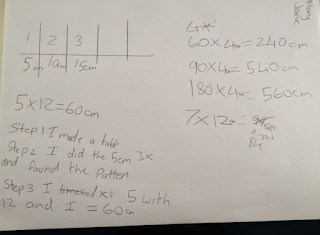 1 2 3
5cm 10cm 15cm
5x12=60cm
Step 1 I made a table
Step 2 I did the 5cm 3x
and found the Patten
Step 3 I timesed x's 5 with
12 and I = 60cm
Mary
Jane
60x4=240cm
90x4=540cm
180x4=560cm
7x12=
84